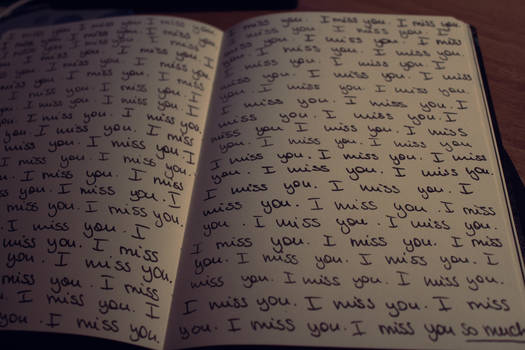 I miss you. I miss you. I miss you.
I miss you. I miss you. I
miss you. I miss you. I miss
you. I miss you. I miss you.
I miss you. I miss you. I
miss you. I miss you. I miss
you. I miss you. I miss you.
I miss you. I miss you. I
miss you. I miss you. I miss you.
you. I miss you. I miss
miss you. I miss you. I
I miss you. I miss you.
you. I miss you. I miss
you. I miss you. I
miss you. I miss you.
I miss you. I
miss you. I miss
you. I miss you.
miss you. I miss
I miss you. I
you. I miss you.
I miss you. I miss you. I miss you.
I miss you. I miss you. I
miss you. I miss you. I miss
you. I miss you. I miss you.
I miss you. I miss you. I
miss you. I miss you. I miss
you. I miss you. I miss you.
I miss you. I miss you. I
miss you. I miss you. I
miss you. I miss you. I miss
you. I miss you. I miss you
I miss you. I miss you. I miss
you. I miss you. I miss you.
I miss you. I miss you. I
miss you. I miss you. I miss
you. I miss you. I miss you.
I miss you. I miss you. I miss
you. I miss you. I miss you. I
miss you. I miss you. I miss you.
I miss you. I miss you. I miss
you. I miss you. I miss you so much